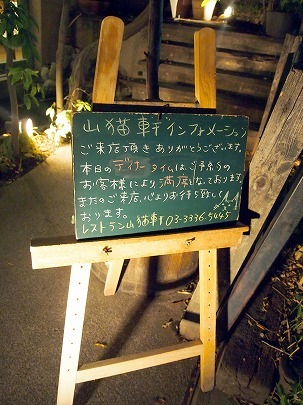 山猫軒インフォメーション
ご来店頂きありがとうございます。
本日のディナータイムは、ご予約の
お客様により、満席となっております
またのご来店、心よりお待ち致して
おります。
レストラン山猫軒 03-3336-5445